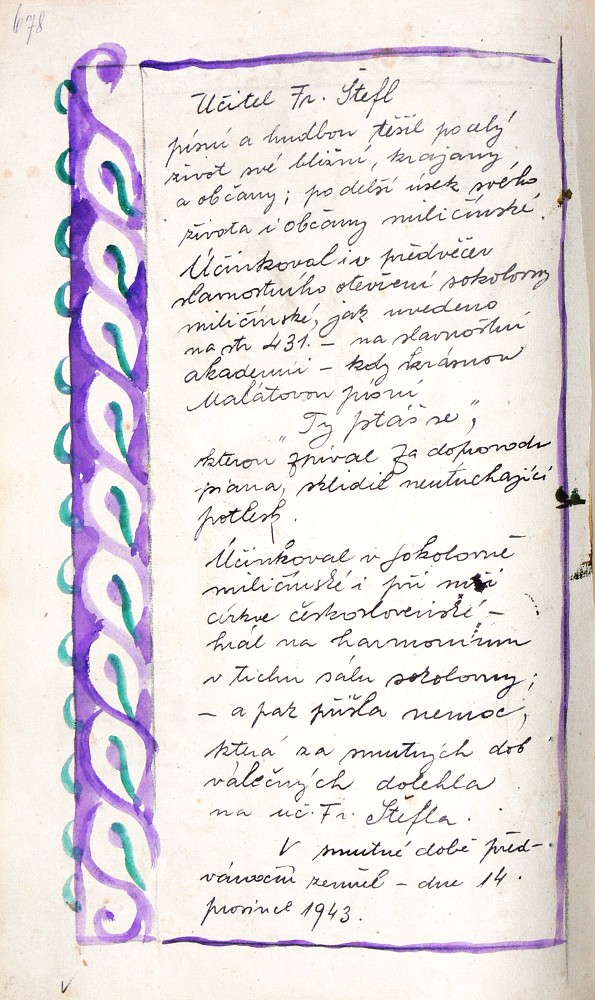 678
Učitel Fr. Štefl
písní a hudbou těšil po celý
život své bližní, krajany
a občany; po delší úsek svého
života i občany miličínské.
Účinkoval i v předvečer
slavnostního otevření sokolovny
miličínské, jak uvedeno
na str 431. – na slavnostní
akademii – kdy krásnou
Malátovou písní
"Ty ptáš se",
kterou zpíval za doprovodu
piana, sklidil neutuchající
potlesk.
Účinkoval v sokolovně
miličínské i při mši
církve československé –
hrál na harmonium
v tichu sálu sokolovny;
– a pak přišla nemoc,
která za smutných dob
válečných dolehla
na uč. Fr. Štefla.
V smutné době před-
vánoční zemřel – dne 14.
prosince 1943.